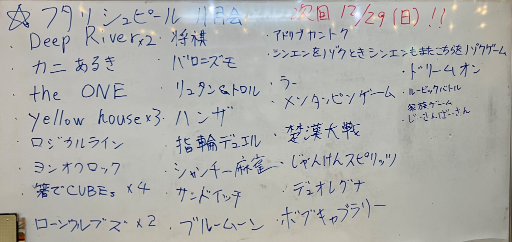 ☆ フタリシュピール 11月会
次回 12/29(日)!!
Deep River×2
・カニあるき
・the ONE
・Yellow house×3
・ロジカルライン
・ヨンオクロック
・箸でCUBEs ×4
・ローンウルブズ×2
・将棋
・バロニズモ
・リュタン&トロル
・ハンザ
・指輪デュエル
・シャンチー麻雀
・サンドイッチ
・ブルームーン
・アドリブカントク
・シンエンをノゾクときシンエンもまたこちらをノゾクゲーム
・ラー
・メンタンピンゲーム
・楚漢大戦
・じゃんけんスピリッツ
・デュオレグナ
・ボブギャブラリー
・ドリームオン
・ルービックバトル
・家族ゲーム
・じーさんばーさん